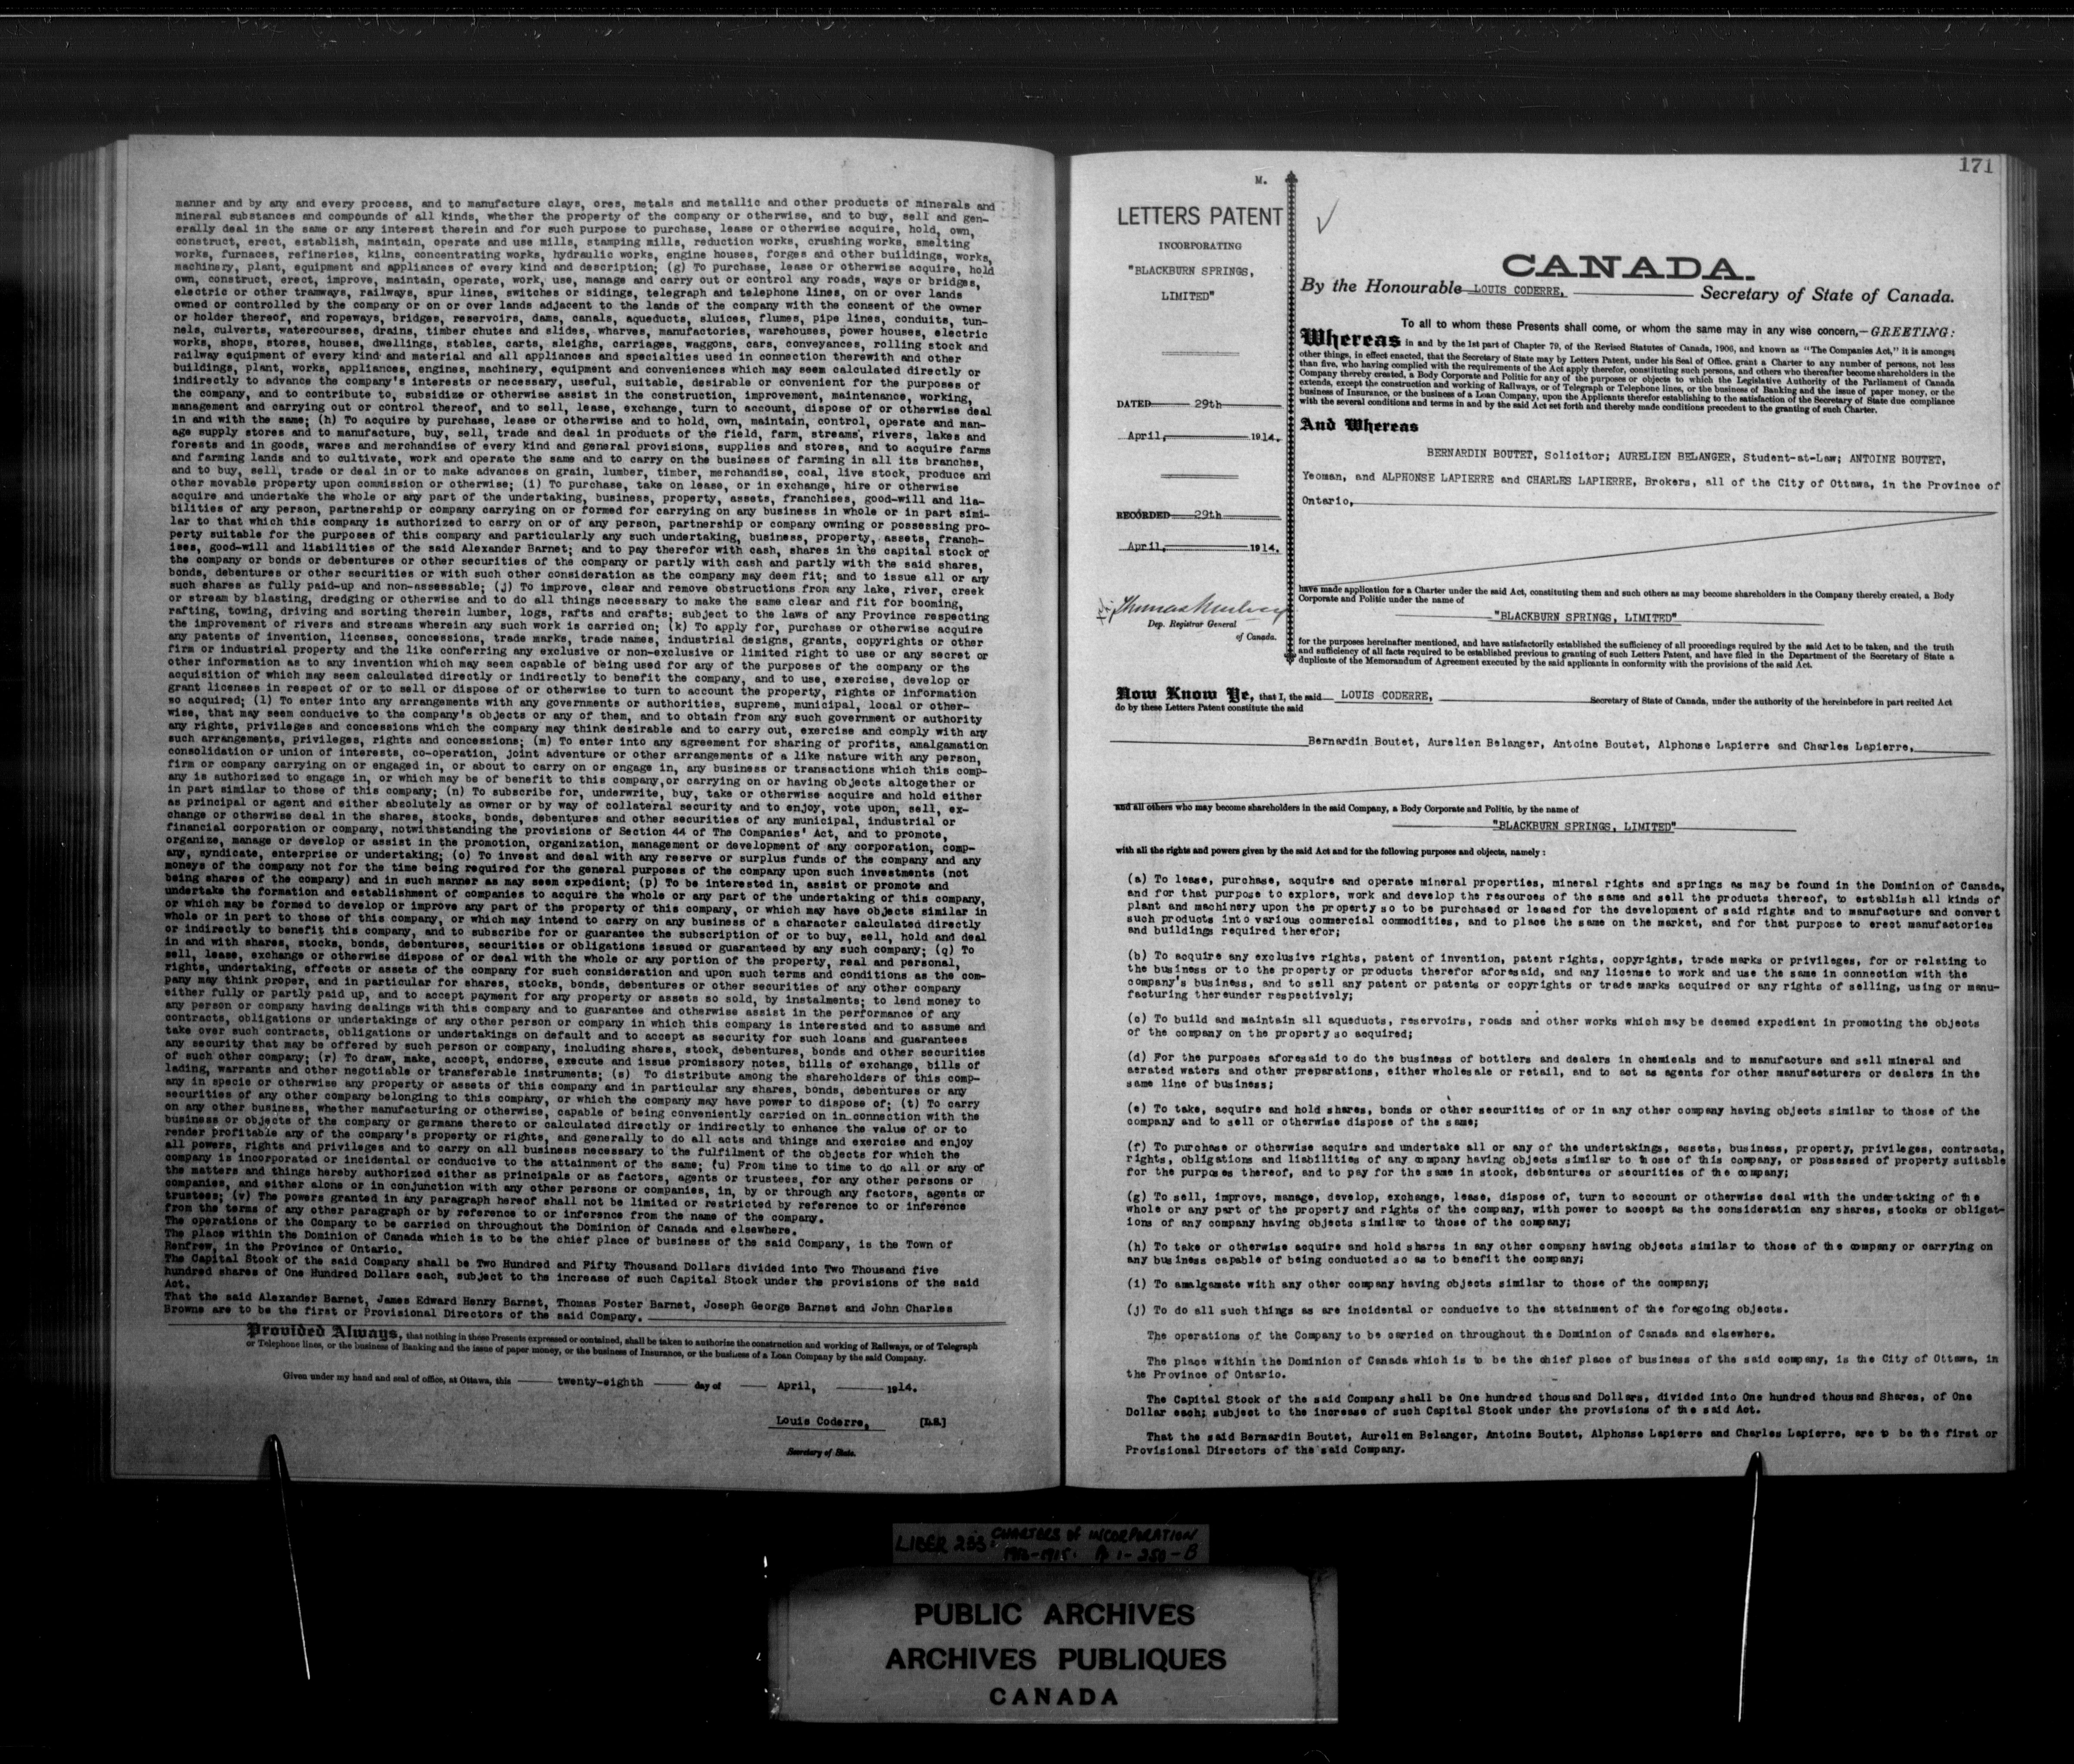 manner and by any and every process, and to manufacture clays, ores, metals and metallic and other products of minerals and
mineral substances and compounds of all kinds, whether the property of the company or otherwise, and to buy, sell and gen-
erally deal in the same or any interest therein and for such purpose to purchase, lease or otherwise acquire, hold, own,
construct, erect, establish, maintain, operate and use mills, stamping mills, reduction works, crushing works, smelting
works, furnaces, refineries, kilns, concentrating works, hydraulic works, engine houses, forges and other buildings, works,
machinery, plant, equipment and appliances of every kind and description; (g) To purchase, lease or otherwise acquire, hold
own, construct, erect, improve, maintain, operate, work, use, manage and carry out or control any roads, ways or bridges,
electric or other tramways, railways, spur lines, switches or sidings, telegraph and telephone lines, on or over lands
owned or controlled by the company or on or over lands adjacent to the lands of the company with the consent of the owner
or holder thereof, and ropeways, bridges, reservoirs, dams, canals, aqueducts, sluices, flumes, pipe lines, conduits, tun-
nels, culverts, watercourses, drains, timber chutes and slides, wharves, manufactories, warehouses, power houses, electric
works, shops, stores, houses, dwellings, stables, carts, sleighs, carriages, waggons, cars, conveyances, rolling stock and
railway equipment of every kind and material and all appliances and specialties used in connection therewith and other
buildings, plant, works, appliances, engines, machinery, equipment and conveniences which may seem calculated directly or
indirectly to advance the company's interests or necessary, useful, suitable, desirable or convenient for the purposes of
the company, and to contribute to, subsidize or otherwise assist in the construction, improvement, maintenance, working,
management and carrying out or control thereof, and to sell, lease, exchange, turn to account, dispose of or otherwise deal
in and with the same; (h) To acquire by purchase, lease or otherwise and to hold, own, maintain, control, operate and man-
age supply stores and to manufacture, buy, sell, trade and deal in products of the field, farm, streams, rivers, lakes and
forests and in goods, wares and merchandise of every kind and general provisions, supplies and stores, and to acquire farms
and farming lands and to cultivate, work and operate the same and to carry on the business of farming in all its branches,
and to buy, sell, trade or deal in or to make advances on grain, lumber, timber, merchandise, coal, live stock, produce and
other movable property upon commission or otherwise; (i) To purchase, take on lease, or in exchange, hire or otherwise
acquire and undertake the whole or any part of the undertaking, business, property, assets, franchises, good-will and lia-
bilities of any person, partnership or company carrying on or formed for carrying on any business in whole or in part simi-
lar to that which this company is authorized to carry on or of any person, partnership or company owning or possessing pro-
perty suitable for the purposes of this company and particularly any such undertaking, business, property, assets, franch-
ises, good-will and liabilities of the said Alexander Barnet; and to pay therefor with cash, shares in the capital stock of
the company or bonds or debentures or other securities of the company or partly with cash and partly with the said shares,
bonds, debentures or other securities or with such other consideration as the company may deem fit; and to issue all or any
such shares as fully paid-up and non-assessable; (j) To improve, clear and remove obstructions from any lake, river, creek
or stream by blasting, dredging or otherwise and to do all things necessary to make the same clear and fit for booming,
rafting, towing, driving and sorting therein lumber, logs, rafts and crafts; subject to the laws of any Province respecting
the improvement of rivers and streams wherein any such work is carried on; (k) To apply for, purchase or otherwise acquire
any patents of invention, licenses, concessions, trade marks, trade names, industrial designs, grants, copyrights or other
firm or industrial property and the like conferring any exclusive or non-exclusive or limited right to use or any secret or
other information as to any invention which may seem capable of being used for any of the purposes of the company or the
acquisition of which may seem calculated directly or indirectly to benefit the company, and to use, exercise, develop or
grant licenses in respect of or to sell or dispose of or otherwise to turn to account the property, rights or information
so acquired; (l) To enter into any arrangements with any governments or authorities, supreme, municipal, local or other-
wise, that may seem conducive to the company's objects or any of them, and to obtain from any such government or authority
any rights, privileges and concessions which the company may think desirable and to carry out, exercise and comply with any
such arrangements, privileges, rights and concessions; (m) To enter into any agreement for sharing of profits, amalgamation
consolidation or union of interests, co-operation, joint adventure or other arrangements of a like nature with any person,
firm or company carrying on or engaged in, or about to carry on or engage in, any business or transactions which this comp-
any is authorized to engage in, or which may be of benefit to this company,or carrying on or having objects altogether or
in part similar to those of this company; (n) To subscribe for, underwrite, buy, take or otherwise acquire and hold either
as principal or agent and either absolutely as owner or by way of collateral security and to enjoy, vote upon, sell, ex-
change or otherwise deal in the shares, stocks, bonds, debentures and other securities of any municipal, industrial or
financial corporation or company, notwithstanding the provisions of Section 44 of The Companies' Act, and to promote,
organize, manage or develop or assist in the promotion, organization, management or development of any corporation, comp-
any, syndicate, enterprise or undertaking; (o) To invest and deal with any reserve or surplus funds of the company and any
moneys of the company not for the time being required for the general purposes of the company upon such investments (not
being shares of the company) and in such manner as may seem expedient; (p) To be interested in, assist or promote and
undertake the formation and establishment of companies to acquire the whole or any part of the undertaking of this company,
or which may be formed to develop or improve any part of the property of this company, or which may have objects similar in
whole or in part to those of this company, or which may intend to carry on any business of a character calculated directly
or indirectly to benefit this company, and to subscribe for or guarantee the subscription of or to buy, sell, hold and deal
in and with shares, stocks, bonds, debentures, securities or obligations issued or guaranteed by any such company; (q) To
sell, lease, exchange or otherwise dispose of or deal with the whole or any portion of the property, real and personal,
rights, undertaking, effects or assets of the company for such consideration and upon such terms and conditions as the com-
pany may think proper, and in particular for shares, stocks, bonds, debentures or other securities of any other company
either fully or partly paid up, and to accept payment for any property or assets so sold, by instalments; to lend money to
any person or company having dealings with this company and to guarantee and otherwise assist in the performance of any
contracts, obligations or undertakings of any other person or company in which this company is interested and to assume and
take over such contracts, obligations or undertakings on default and to accept as security for such loans and guarantees
any security that may be offered by such person or company, including shares, stock, debentures, bonds and other securities
of such other company; (r) To draw, make, accept, endorse, execute and issue promissory notes, bills of exchange, bills of
lading, warrants and other negotiable or transferable instruments; (s) To distribute among the shareholders of this comp-
any in specie or otherwise any property or assets of this company and in particular any shares, bonds, debentures or any
securities of any other company belonging to this company, or which the company may have power to dispose of; (t) To carry
on any other business, whether manufacturing or otherwise, capable of being conveniently carried on in connection with the
business or objects of the company or germane thereto or calculated directly or indirectly to enhance the value of or to
render profitable any of the company's property or rights, and generally to do all acts and things and exercise and enjoy
all powers, rights and privileges and to carry on all business necessary to the fulfilment of the objects for which the
company is incorporated or incidental or conducive to the attainment of the same; (u) From time to time to do all or any of
the matters and things hereby authorized either as principals or as factors, agents or trustees, for any other persons or
companies, and either alone or in conjunction with any other persons or companies, in, by or through any factors, agents or
trustees; (v) The powers granted in any paragraph hereof shall not be limited or restricted by reference to or inference
from the terms of any other paragraph or by reference to or inference from the name of the company.
The operations of the Company to be carried on throughout the Dominion of Canada and elsewhere.
The place within the Dominion of Canada which is to be the chief place of business of the said Company, is the Town of
Renfrew, in the Province of Ontario.
The Capital Stock of the said Company shall be Two Hundred and Fifty Thousand Dollars divided into Two Thousand five
hundred shares of One Hundred Dollars each, subject to the increase of such Capital Stock under the provisions of the said
Act.
That the said Alexander Barnet, James Edward Henry Barnet, Thomas Foster Barnet, Joseph George Barnet and John Charles
Browne are to be the first or Provisional Directors of the said Company.
Provided Always, that nothing in these Presents expressed or contained, shall be taken to authorize the construction and working of Railways, or of Telegraph
or Telephone lines, or the business of Banking and the issue of paper money, or the business of Insurance, or the business of a Loan Company by the said Company.
Given under my hand and seal of office, at Ottawa, this twenty-eighth day of April, 1914.
Louis Coderre, [L.S.]
Secretary of State.
171
M.
LETTERS PATENT
INCORPORATING
"BLACKBURN SPRINGS,
LIMITED"
DATED 29th
April, 1914.
RECORDED 29th
April, 1914.
Thomas Mulvey
Dep. Registrar General
of Canada.
CANADA.
By the Honourable LOUIS CODERRE, Secretary of State of Canada.
To all to whom these Presents shall come, or whom the same may in any wise concern,—GREETING:
Whereas in and by the 1st part of Chapter 79, of the Revised Statutes of Canada, 1906, and known as "The Companies Act," it is amongst
other things, in effect enacted, that the Secretary of State may by Letters Patent, under his Seal of Office, grant a Charter to any number of persons, not less
than five, who having complied with the requirements of the Act apply therefor, constituting such persons, and others who thereafter become shareholders in the
Company thereby created, a Body Corporate and Politic for any of the purposes or objects to which the Legislative Authority of the Parliament of Canada
extends, except the construction and working of Railways, or of Telegraph or Telephone lines, or the business of Banking and the issue of paper money, or the
business of Insurance, or the business of a Loan Company, upon the Applicants therefor establishing to the satisfaction of the Secretary of State due compliance
with the several conditions and terms in and by the said Act set forth and thereby made conditions precedent to the granting of such Charter.
And Whereas
BERNARDIN BOUTET, Solicitor; AURELIEN BELANGER, Student-at-Law; ANTOINE BOUTET,
Yeoman, and ALPHONSE LAPIERRE and CHARLES LAPIERRE, Brokers, all of the City of Ottawa, in the Province of
Ontario,
have made application for a Charter under the said Act, constituting them and such others as may become shareholders in the Company thereby created, a Body
Corporate and Politic under the name of
"BLACKBURN SPRINGS, LIMITED"
for the purposes hereinafter mentioned, and have satisfactorily established the sufficiency of all proceedings required by the said Act to be taken, and the truth
and sufficiency of all facts required to be established previous to granting of such Letters Patent, and have filed in the Department of the Secretary of State a
duplicate of the Memorandum of Agreement executed by the said applicants in conformity with the provisions of the said Act.
Now Know Ye, that I, the said LOUIS CODERRE, Secretary of State of Canada, under the authority of the hereinbefore in part recited Act
do by these Letters Patent constitute the said
Bernardin Boutet, Aurelien Belanger, Antoine Boutet, Alphonse Lapierre and Charles Lapierre,
and all others who may become shareholders in the said Company, a Body Corporate and Politic, by the name of
"BLACKBURN SPRINGS, LIMITED"
with all the rights and powers given by the said Act and for the following purposes and objects, namely :
(a) To lease, purchase, acquire and operate mineral properties, mineral rights and springs as may be found in the Dominion of Canada,
and for that purpose to explore, work and develop the resources of the same and sell the products thereof, to establish all kinds of
plant and machinery upon the property so to be purchased or leased for the development of said rights and to manufacture and convert
such products into various commercial commodities, and to place the same on the market, and for that purpose to erect manufactories
and buildings required therefor;
(b) To acquire any exclusive rights, patent of invention, patent rights, copyrights, trade marks or privileges, for or relating to
the business or to the property or products therefor aforesaid, and any license to work and use the same in connection with the
company's business, and to sell any patent or patents or copyrights or trade marks acquired or any rights of selling, using or manu-
facturing thereunder respectively;
(c) To build and maintain all aqueducts, reservoirs, roads and other works which may be deemed expedient in promoting the objects
of the company on the property so acquired;
(d) For the purposes aforesaid to do the business of bottlers and dealers in chemicals and to manufacture and sell mineral and
aerated waters and other preparations, either wholesale or retail, and to act as agents for other manufacturers or dealers in the
same line of business;
(e) To take, acquire and hold shares, bonds or other securities of or in any other company having objects similar to those of the
company and to sell or otherwise dispose of the same;
(f) To purchase or otherwise acquire and undertake all or any of the undertakings, assets, business, property, privileges, contracts,
rights, obligations and liabilities of any company having objects similar to those of this company, or possessed of property suitable
for the purposes thereof, and to pay for the same in stock, debentures or securities of the company;
(g) To sell, improve, manage, develop, exchange, lease, dispose of, turn to account or otherwise deal with the undertaking of the
whole or any part of the property and rights of the company, with power to accept as the consideration any shares, stocks or obligat-
ions of any company having objects similar to those of the company;
(h) To take or otherwise acquire and hold shares in any other company having objects similar to those of the company or carrying on
any business capable of being conducted so as to benefit the company;
(i) To amalgamate with any other company having objects similar to those of the company;
(j) To do all such things as are incidental or conducive to the attainment of the foregoing objects.
The operations of the Company to be carried on throughout the Dominion of Canada and elsewhere.
The place within the Dominion of Canada which is to be the chief place of business of the said company, is the City of Ottawa, in
the Province of Ontario.
The Capital Stock of the said Company shall be One hundred thousand Dollars, divided into One hundred thousand Shares, of One
Dollar each; subject to the increase of such Capital Stock under the provisions of the said Act.
That the said Bernardin Boutet, Aurelien Belanger, Antoine Boutet, Alphonse Lapierre and Charles Lapierre, are to be the first or
Provisional Directors of the said Company.
LIBER 233: CHARTERS OF INCORPORATION
1913-1915. P. 1-250-B
PUBLIC ARCHIVES
ARCHIVES PUBLIQUES
CANADA